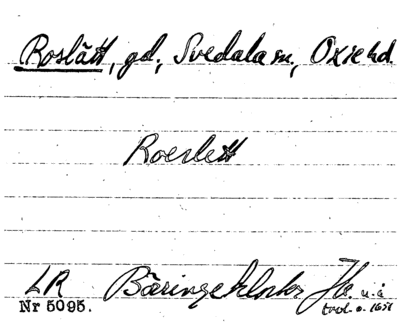 Roslätt, gd, Svedala sn, Oxie hd.
Roeslett
LR Bäringe kloster Jb. u.å
Nr 5095. trol. o. 1651